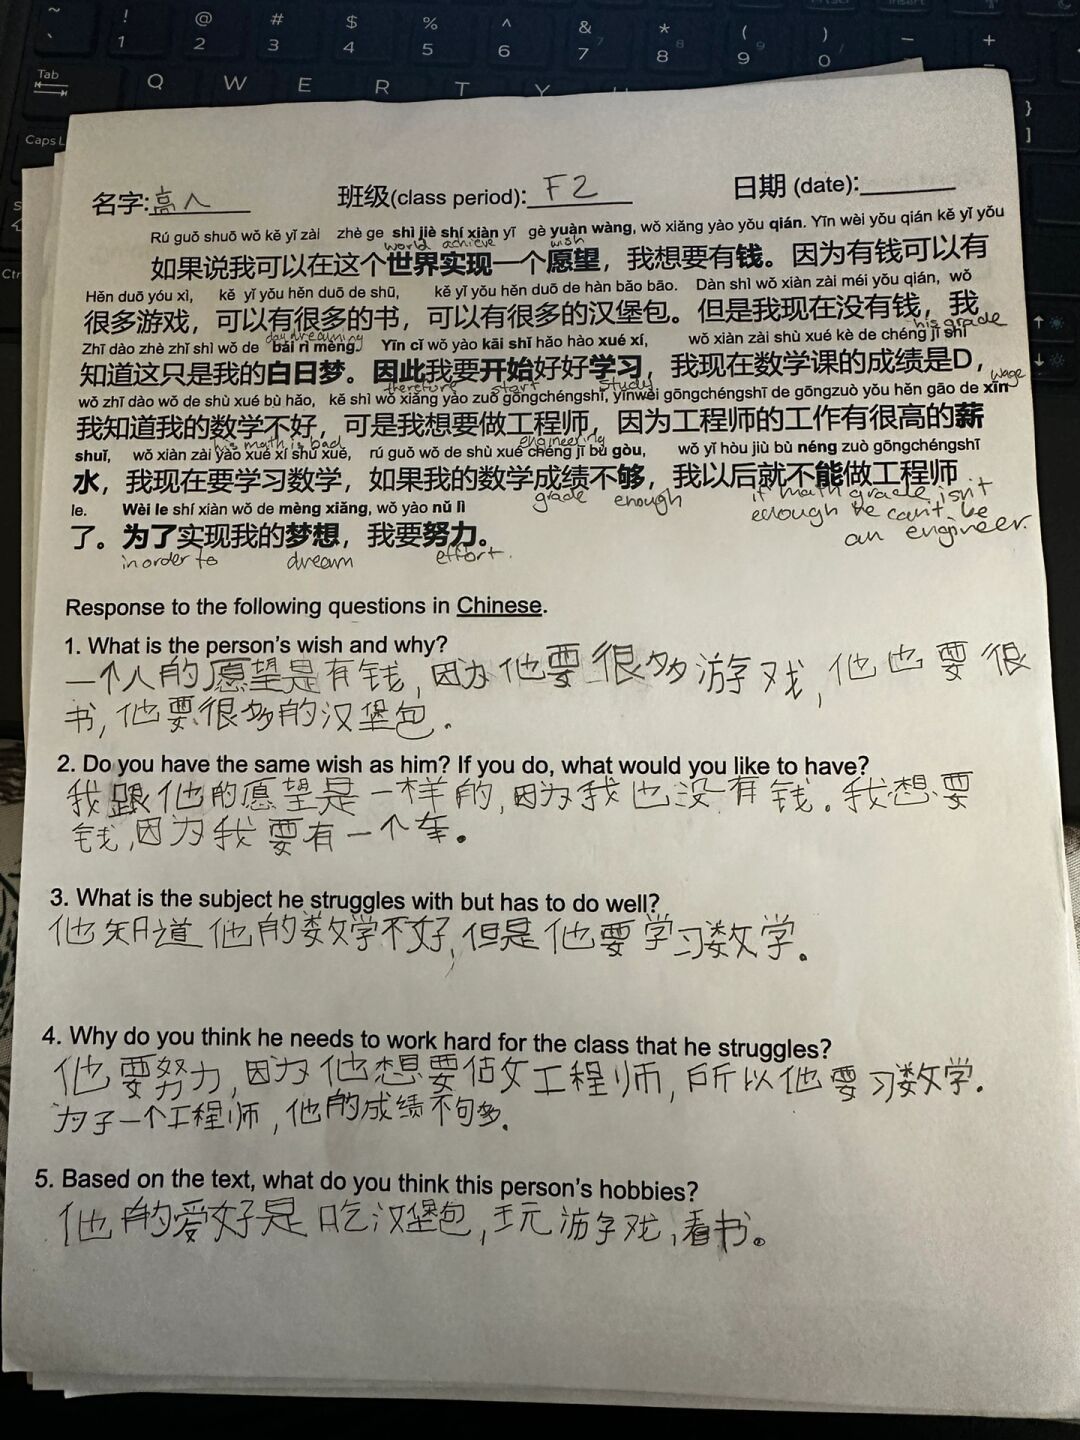 名字:高人 班级(class period): F2 日期 (date):
Rú guǒ shuō wǒ kě yǐ zài zhè ge shì jiè shí xiàn yī gè yuàn wàng, wǒ xiǎng yào yǒu qián. Yīn wèi yǒu qián kě yǐ yǒu
world achieve wish
如果说我可以在这个世界实现一个愿望，我想要有钱。因为有钱可以有
Hěn duō yóu xì, kě yǐ yǒu hěn duō de shū, kě yǐ yǒu hěn duō de hàn bǎo bāo. Dàn shì wǒ xiàn zài méi yǒu qián, wǒ
很多游戏，可以有很多的书，可以有很多的汉堡包。但是我现在没有钱，我
daydreaming his grade
Zhī dào zhè zhǐ shì wǒ de bái rì mèng. Yīn cǐ wǒ yào kāi shǐ hǎo hǎo xué xí, wǒ xiàn zài shù xué kè de chéng jī shì
知道这只是我的白日梦。因此我要开始好好学习，我现在数学课的成绩是D，
therefore start study wage
wǒ zhī dào wǒ de shù xué bù hǎo, kě shì wǒ xiǎng yào zuò gōngchéngshī, yīnwèi gōngchéngshī de gōngzuò yǒu hěn gāo de xīn
我知道我的数学不好，可是我想要做工程师，因为工程师的工作有很高的薪
his math is bad engineering
shuǐ, wǒ xiàn zài yào xué xí shù xué, rú guǒ wǒ de shù xué chéng jī bù gòu, wǒ yǐ hòu jiù bù néng zuò gōngchéngshī
水，我现在要学习数学，如果我的数学成绩不够，我以后就不能做工程师
grade enough if math grade isn't
enough he can't be
an engineer.
le. Wèi le shí xiàn wǒ de mèng xiǎng, wǒ yào nǔ lì
了。为了实现我的梦想，我要努力。
in order to dream effort.
Response to the following questions in Chinese.
1. What is the person's wish and why?
一个人的愿望是有钱, 因为他要很多游戏, 他也要很
书, 他要很多的汉堡包.
2. Do you have the same wish as him? If you do, what would you like to have?
我跟他的愿望是一样的, 因为我也没有钱. 我想要
钱, 因为我要有一个车。
3. What is the subject he struggles with but has to do well?
他知道他的数学不好, 但是他要学习数学。
4. Why do you think he needs to work hard for the class that he struggles?
他要努力, 因为他想要做工程师, 所以他要习数学.
为了一个工程师, 他的成绩不够.
5. Based on the text, what do you think this person's hobbies?
他的爱好是吃汉堡包, 玩游戏, 看书。